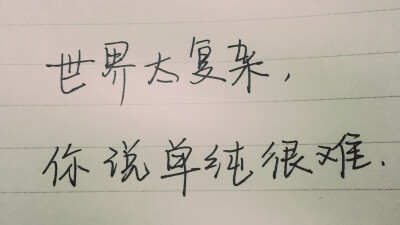 世界太复杂,
你说单纯很难.